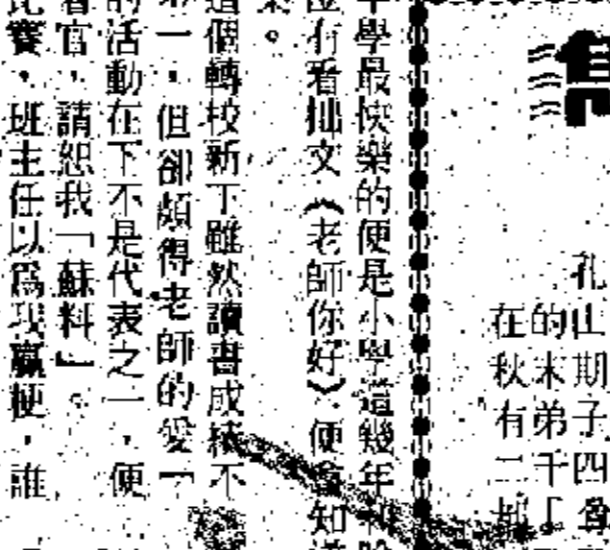 孔
山期子四
的末弟千「
在秋有二
年學最快樂的便是小學這幾年和
位有看拙文(老師你好),便會知道
樂。
這個轉校新丁雖然讀書成績不
不一,但卻頗得老師的愛
的活動在下不是代表之一,便
看官,請恕我「蘇料」。
比賽,班主任以爲我贏梗,誰